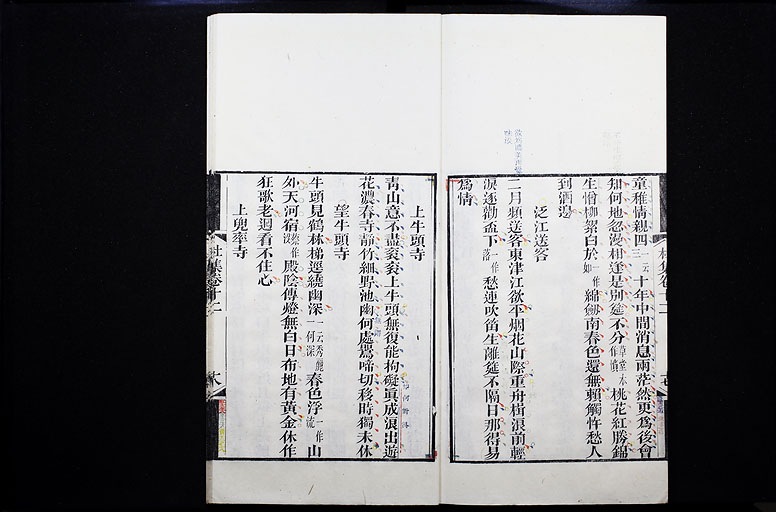 童稚情親四一云三十年中間消息兩茫然更為後會
知何地忽漫相逢是別筵不分草堂本作憤桃花紅勝錦
生憎柳絮白於一作如綿劒南春色還無賴觸忤愁人
到酒邊
泛江送客
二月頻送客東津江欲平烟花山際重舟楫浪前輕
淚逐勸盃下一作落愁連吹笛生離筵不隔日那得易
為情
上牛頭寺
青山意不盡衮衮上牛頭無復能拘礙真成浪出遊
花濃春寺靜竹細野池幽何處鶯啼切移時獨未休
望牛頭寺
牛頭見鶴林梯逕繞幽深一云秀麗一何深春色浮一作流山
外天河宿殿陰傳燈無白日布地有黃金休作
狂歌老迴看不住心
上兜率寺
杜集卷十二